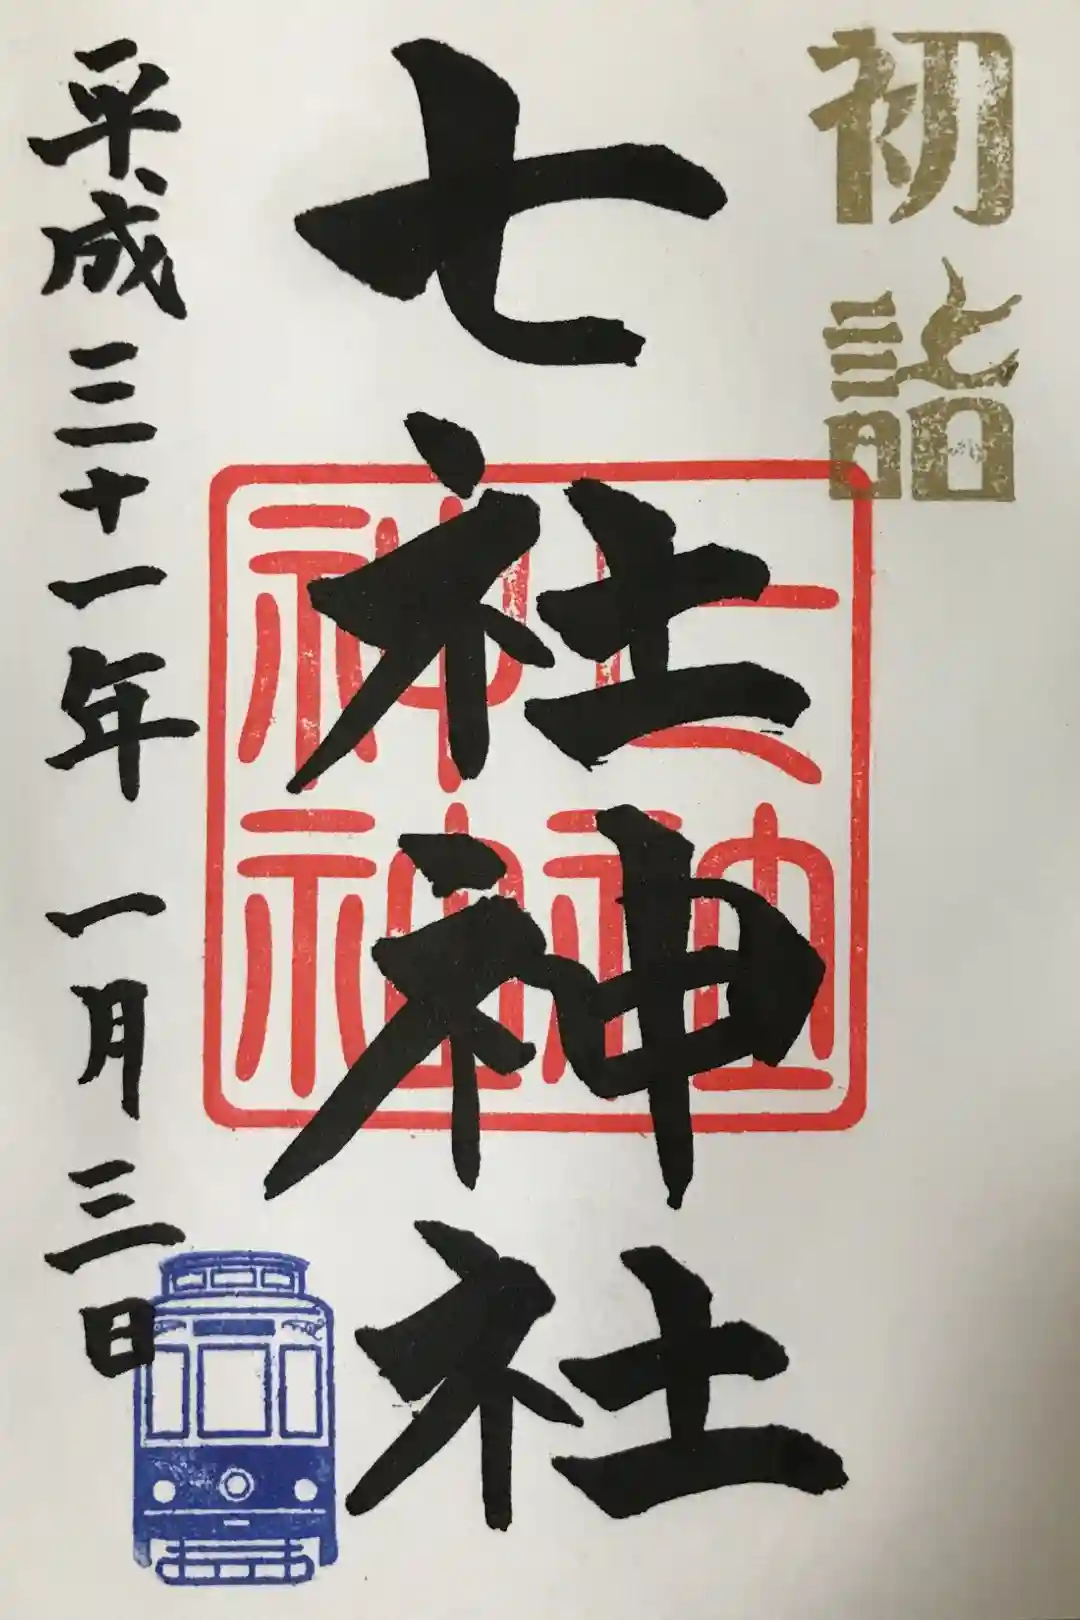 初詣
七社神社
七社神社
平成三十一年一月三日